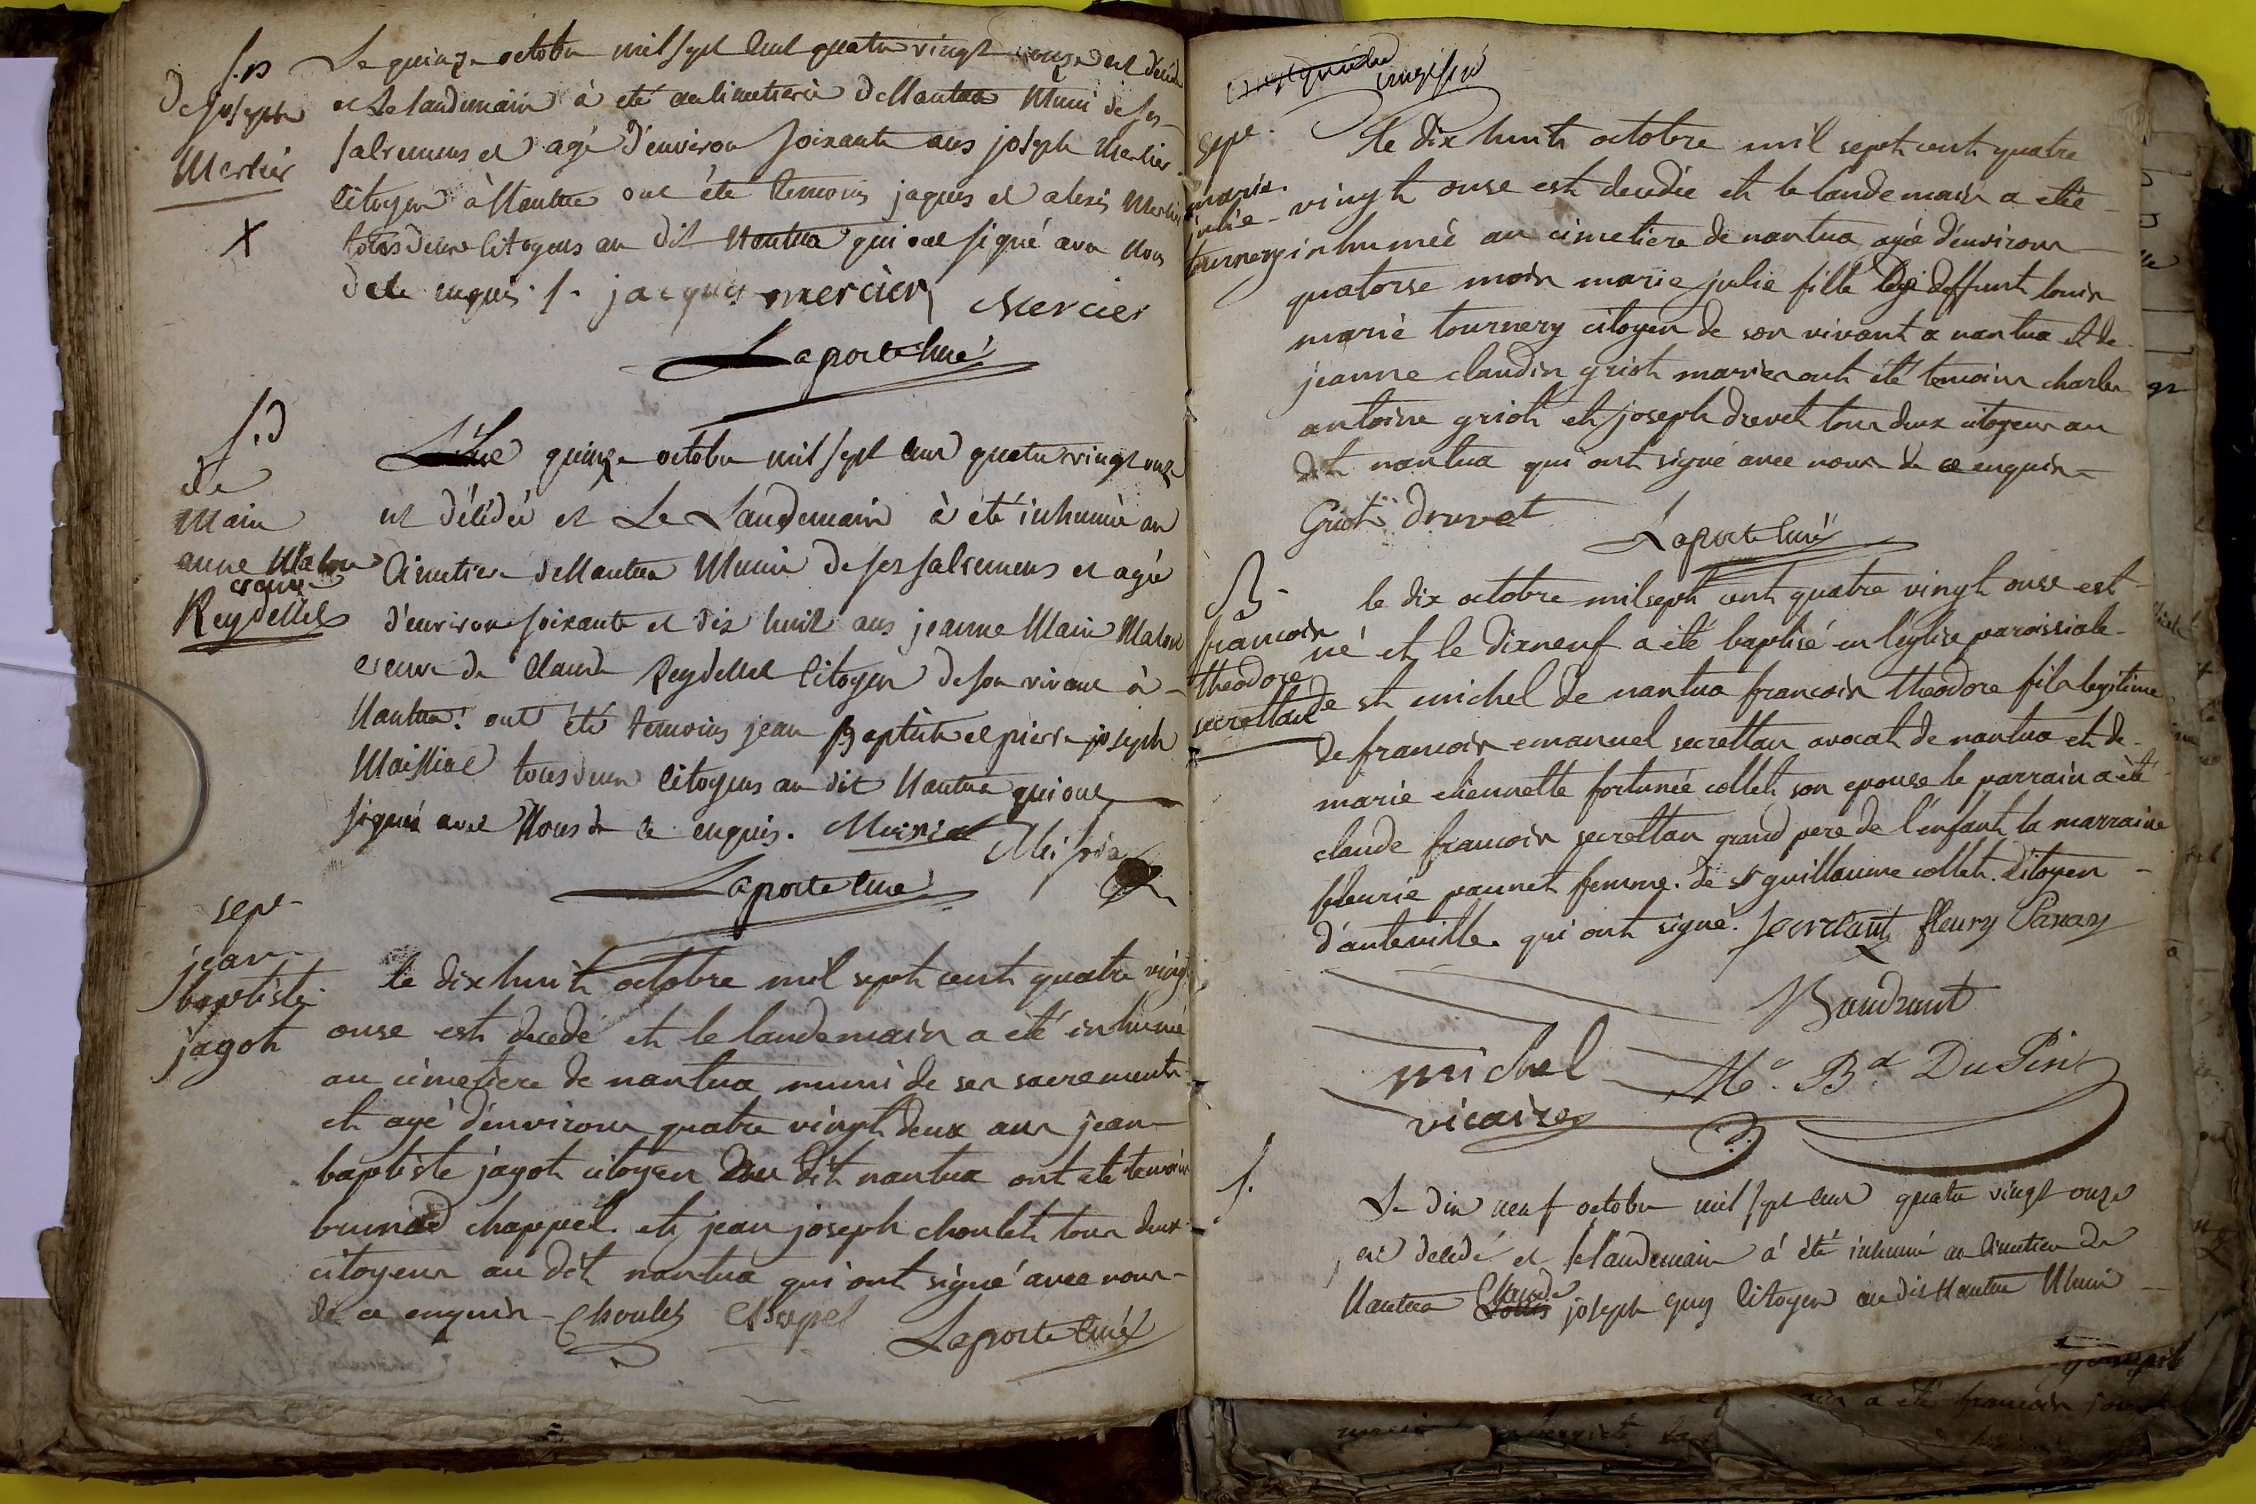 S.D
de joseph
Mercier
Le quinze octobre mil sept cent quatre vingt onze est décédé
et Le landemain à eté au cimetiere de Nantua Muni de ses
sacremens et agé d'environ soixante ans joseph Mercier
citoyen à Nantua ont été temoins jaques et alexis Mercier
tous deux citoyens au dit Nantua qui ont signé avec nous
de ce enquis ·/. jacques mercier Mercier
Laporte curé
S.D
de
Marie
anne Maton
veuve
Reydellet
Le quinze octobre mil sept cent quatre vingt onze
est décédée et Le Landemain à été inhumée au
Cimetiere de Nantua Munie de ses sacremens et agée
d'environ soixante et dix huit ans jeanne Marie Maton
veuve de Claude Reydellet citoyen de son vivant à
Nantua. ont été temoins jean Baptiste et pierre joseph
Maissiat tous deux citoyens au dit Nantua qui ont
signés avec Nous de ce enquis.
Laporte curé
sepe
jean
baptiste
jagot
le dixhuit octobre mil sept cent quatre vingt
onse est decedé et le landemain a été inhumé
au cimetiere de nantua muni de ses sacrements
et agé d'environ quatre vingt deux ans jean
baptiste jagot citoyen au dit nantua ont eté temoins
chappel. et jean joseph choulet tous deux
citoyens au dit nantua qui ont signé avec nous
de ce enquis Choulet Chapel
Laporte curé
sepe.
marie
julie
tournery
le dix huit octobre mil sept cent quatre
vingt onse est decedée et le landemain a etée
inhumée au cimetiere de nantua agée d'environ
quatorse mois marie julie fille de deffunt louis
marie tournery citoyen de son vivant a nantua et de
jeanne claudin griot mariés ont été temoins charles
antoine griot et joseph drevet tous deux citoyens au
dit nantua qui ont signé avec nous de ce enquis
Griot drevet
Laporte curé
B
francois
theodore
secrettan
le dix octobre mil sept cent quatre vingt onse est
né et le dixneuf a été baptisé en l'église paroissiale
de st michel de nantua francois theodore fils legitime
de francois emanuel secrettan avocat de nantua et de
marie etiennette fortunée collet son epouse le parrain a été
claude francois secrettan grand pere de l'enfant la marraine
fleurie pannet femme. de sr guillaume collet. citoyen
d'auteville. qui ont signé. fleury
Baudrant
michel
vicaire
Du Pin
S.
Le dix neuf octobre mil sept cent quatre vingt onze
est decédé et le landemain à été inhumé au Cimetiere de
Nantua Claude joseph Guy Citoyen au dit Nantua Muni